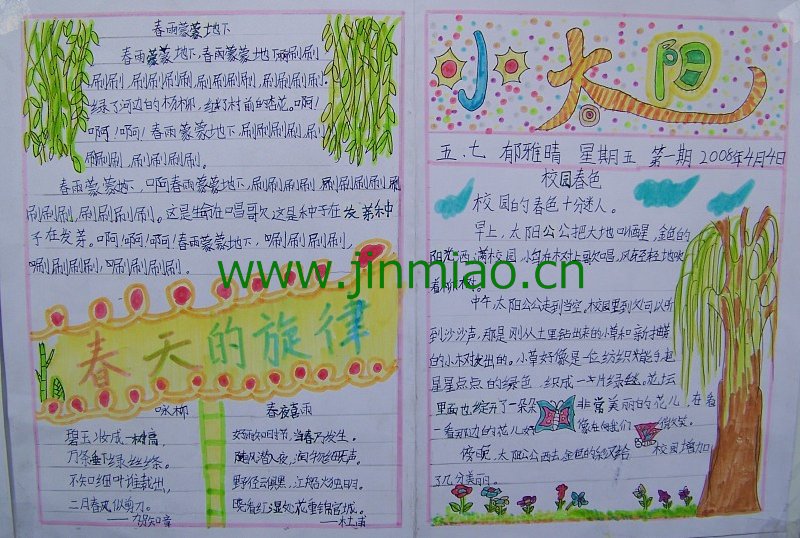 春雨蒙蒙地下
春雨蒙蒙地下,春雨蒙蒙地下,唰唰
唰唰,唰唰唰唰,唰唰唰唰,唰唰唰唰.
绿了河边的杨柳,红了村前的杏花。啊!
啊!啊!春雨蒙蒙地下,唰唰唰唰
唰唰唰,唰唰唰唰。
春雨蒙蒙地下,啊春雨蒙蒙地下,唰唰唰唰,唰唰唰唰
唰唰唰,唰唰唰唰。这是生命在唱歌这是种子在发芽种
子在发芽。啊!啊!啊!春雨蒙蒙地下,唰唰唰唰,
唰唰唰唰,唰唰唰唰。
春天的旋律
咏柳
碧玉妆成一树高,
万条垂下绿丝绦。
不知细叶谁裁出,
二月春风似剪刀。
——贺知章
春夜喜雨
好雨知时节,当春乃发生。
随风潜入夜,润物细无声。
野径云俱黑,江船火独明。
晓看红湿处,花重锦官城。
——杜甫
小太阳
五.七 郁雅晴 星期五 第一期 2008年4月4日
校园春色
校园的春色十分迷人。
早上,太阳公公把大地叫醒,金色的
阳光洒满校园,小鸟在树上歌唱,风轻轻地吹
着
中午太阳公公走到当空。校园里到处可以听
到沙沙声,那是刚从土里钻出来的小草和新抽
的小树发出的。小草好像是一位纺织能手把
星星点点的绿色,织成一片绿毯。花坛
里面也绽开了一朵朵非常美丽的花儿,在看
一看那边的花儿好像在向我们微笑。
傍晚,太阳公公西去金色的 给校园增加
了几分美丽。
www.jinmiao.cn